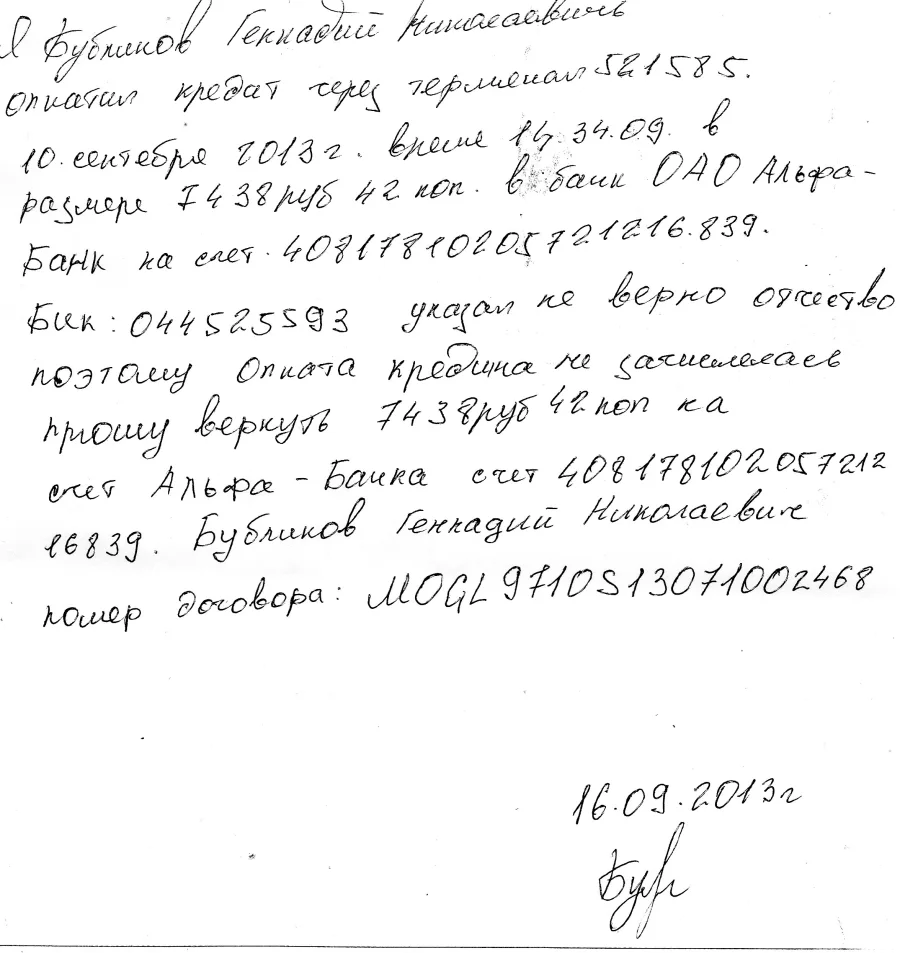 Я Бубликов Геннадий Николаевичь
оплатил кредат через терменал 521585.
10. сентебря 2013г. време 14.34.09. в
размере 7438руб 42 коп. в банк ОАО Альфа-
Банк на счет. 40817810205721216.839.
Бик: 044525593 указал не верно отчество
поэтому оплата кредина не зачислелаев
прошу вернуть 7438руб 42 коп на
счет Альфа - Банка счет 408178102057212
16839. Бубликов Геннадий Николаевич
номер договора: MOGL9710S13071002468
16.09.2013г